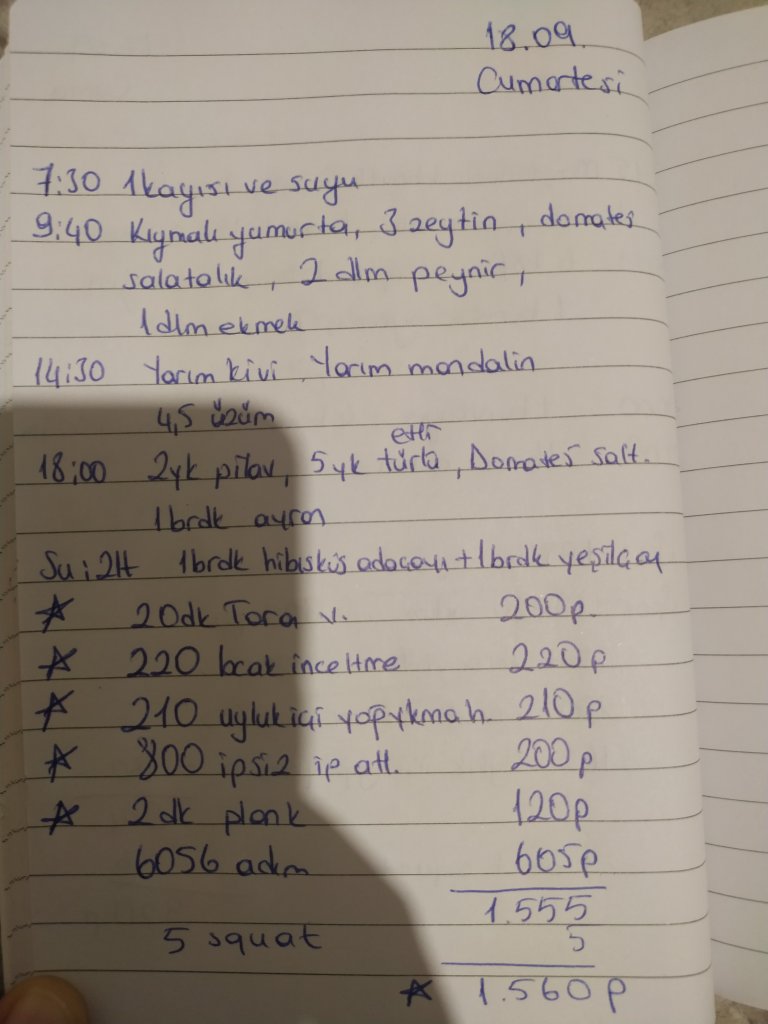 18.09.
Cumartesi
7:30 1 kayısı ve suyu
9:40 Kıymalı yumurta, 3 zeytin, domates
salatalık, 2 dlm peynir,
1 dlm ekmek
14:30 Yarım kivi, Yarım mandalin
4,5 üzüm
etli
18:00 2yk pilav, 5yk türlü, Domates salt.
1 brdk ayran
Su: 2lt 1brdk hibisküs adaçayı + 1brdk yeşilçay
20dk Tora v. 200p.
220 bcak inceltme 220p
210 uyluk içi yap ykmah. 210p
800 ipsiz ip atl. 200p
2 dk plank 120p
6056 adım 605p
1.555
5 squat 5
1.560p